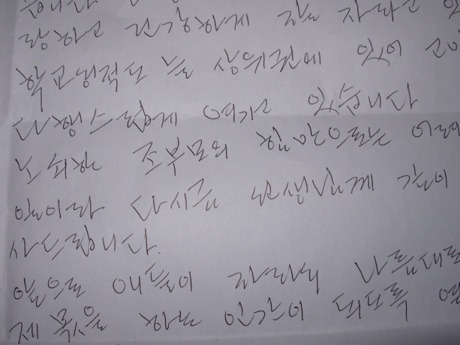 랑하고 건강하게 잘 자라고 있
학교성적도 늘 상위권에 있어 고마
다행스럽게 여기고 있습니다
노쇠한 조부모의 힘만으로는 어려
일이라 다시금 선생님께 깊이
사드립니다.
앞으로 애들이 자라서 나름대로
제 몫을 하는 인간이 되도록 열